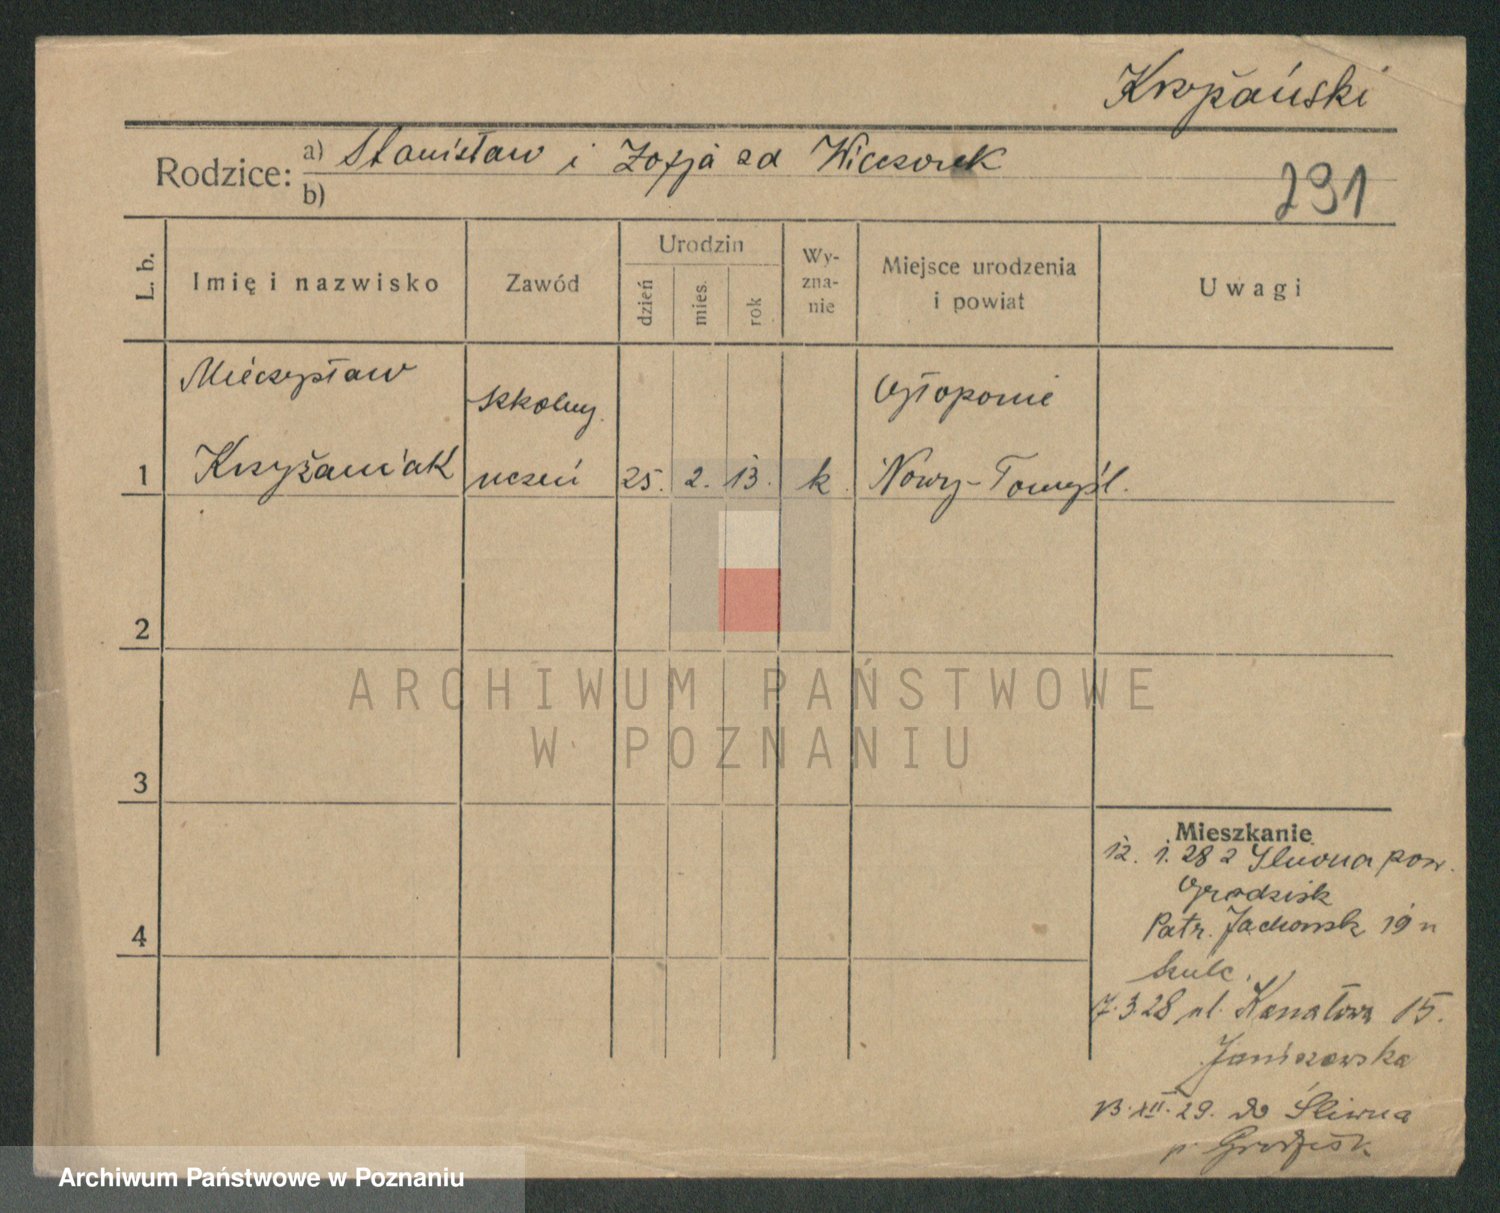 Krzyżański
Rodzice: a) Stanisław i Zofja zd Wieczorek
b)
291
L. b.
Imię i nazwisko
Zawód
Urodzin
dzień
mies.
rok
Wy-
zna-
nie
Miejsce urodzenia
i powiat
Uwagi
Mieczysław
szkolny
1 Krzyżaniak
uczeń
25. 2. 13.
k.
Nowy-Tomyśl.
2
3
4
ARCHIWUM PAŃSTWOWE
W POZNANIU
Mieszkanie
12. 1. 28 z Śliwna pow.
Grodzisk
Patr. Jackowsk 19 u
Szulc.
7.3.28 ul. Kanałowa 15.
Janiszewska
13.XII.29. do Śliwna
p. Grodzisk
Archiwum Państwowe w Poznaniu